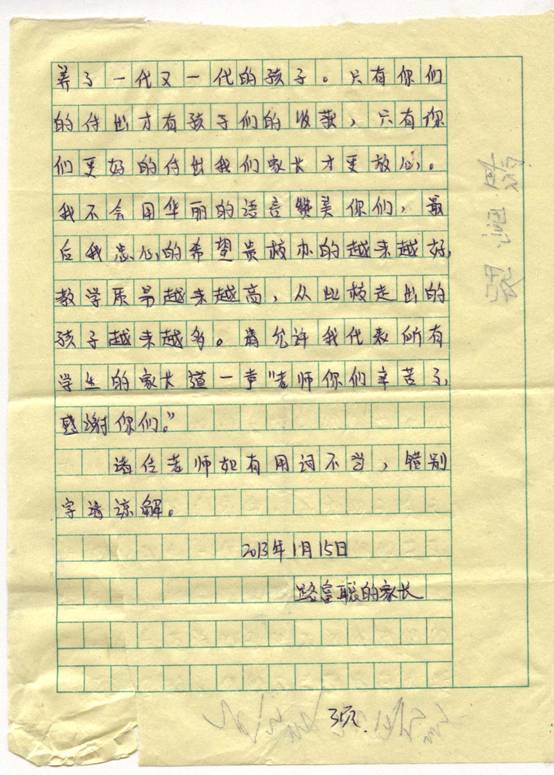 养了一代又一代的孩子。只有你们
的付出才有孩子们的收获，只有你
们更好的付出我们家长才更放心。
我不会用华丽的语言赞美你们，最
后我忠心的希望贵校办的越来越好，
教学质量越来越高，从此校走出的
孩子越来越多。请允许我代表所有
学生的家长道一声“老师你们辛苦了，
感谢你们。”
诸位老师如有用词不当，错别
字请谅解。
2013年1月15日
路富聪的家长
3页.